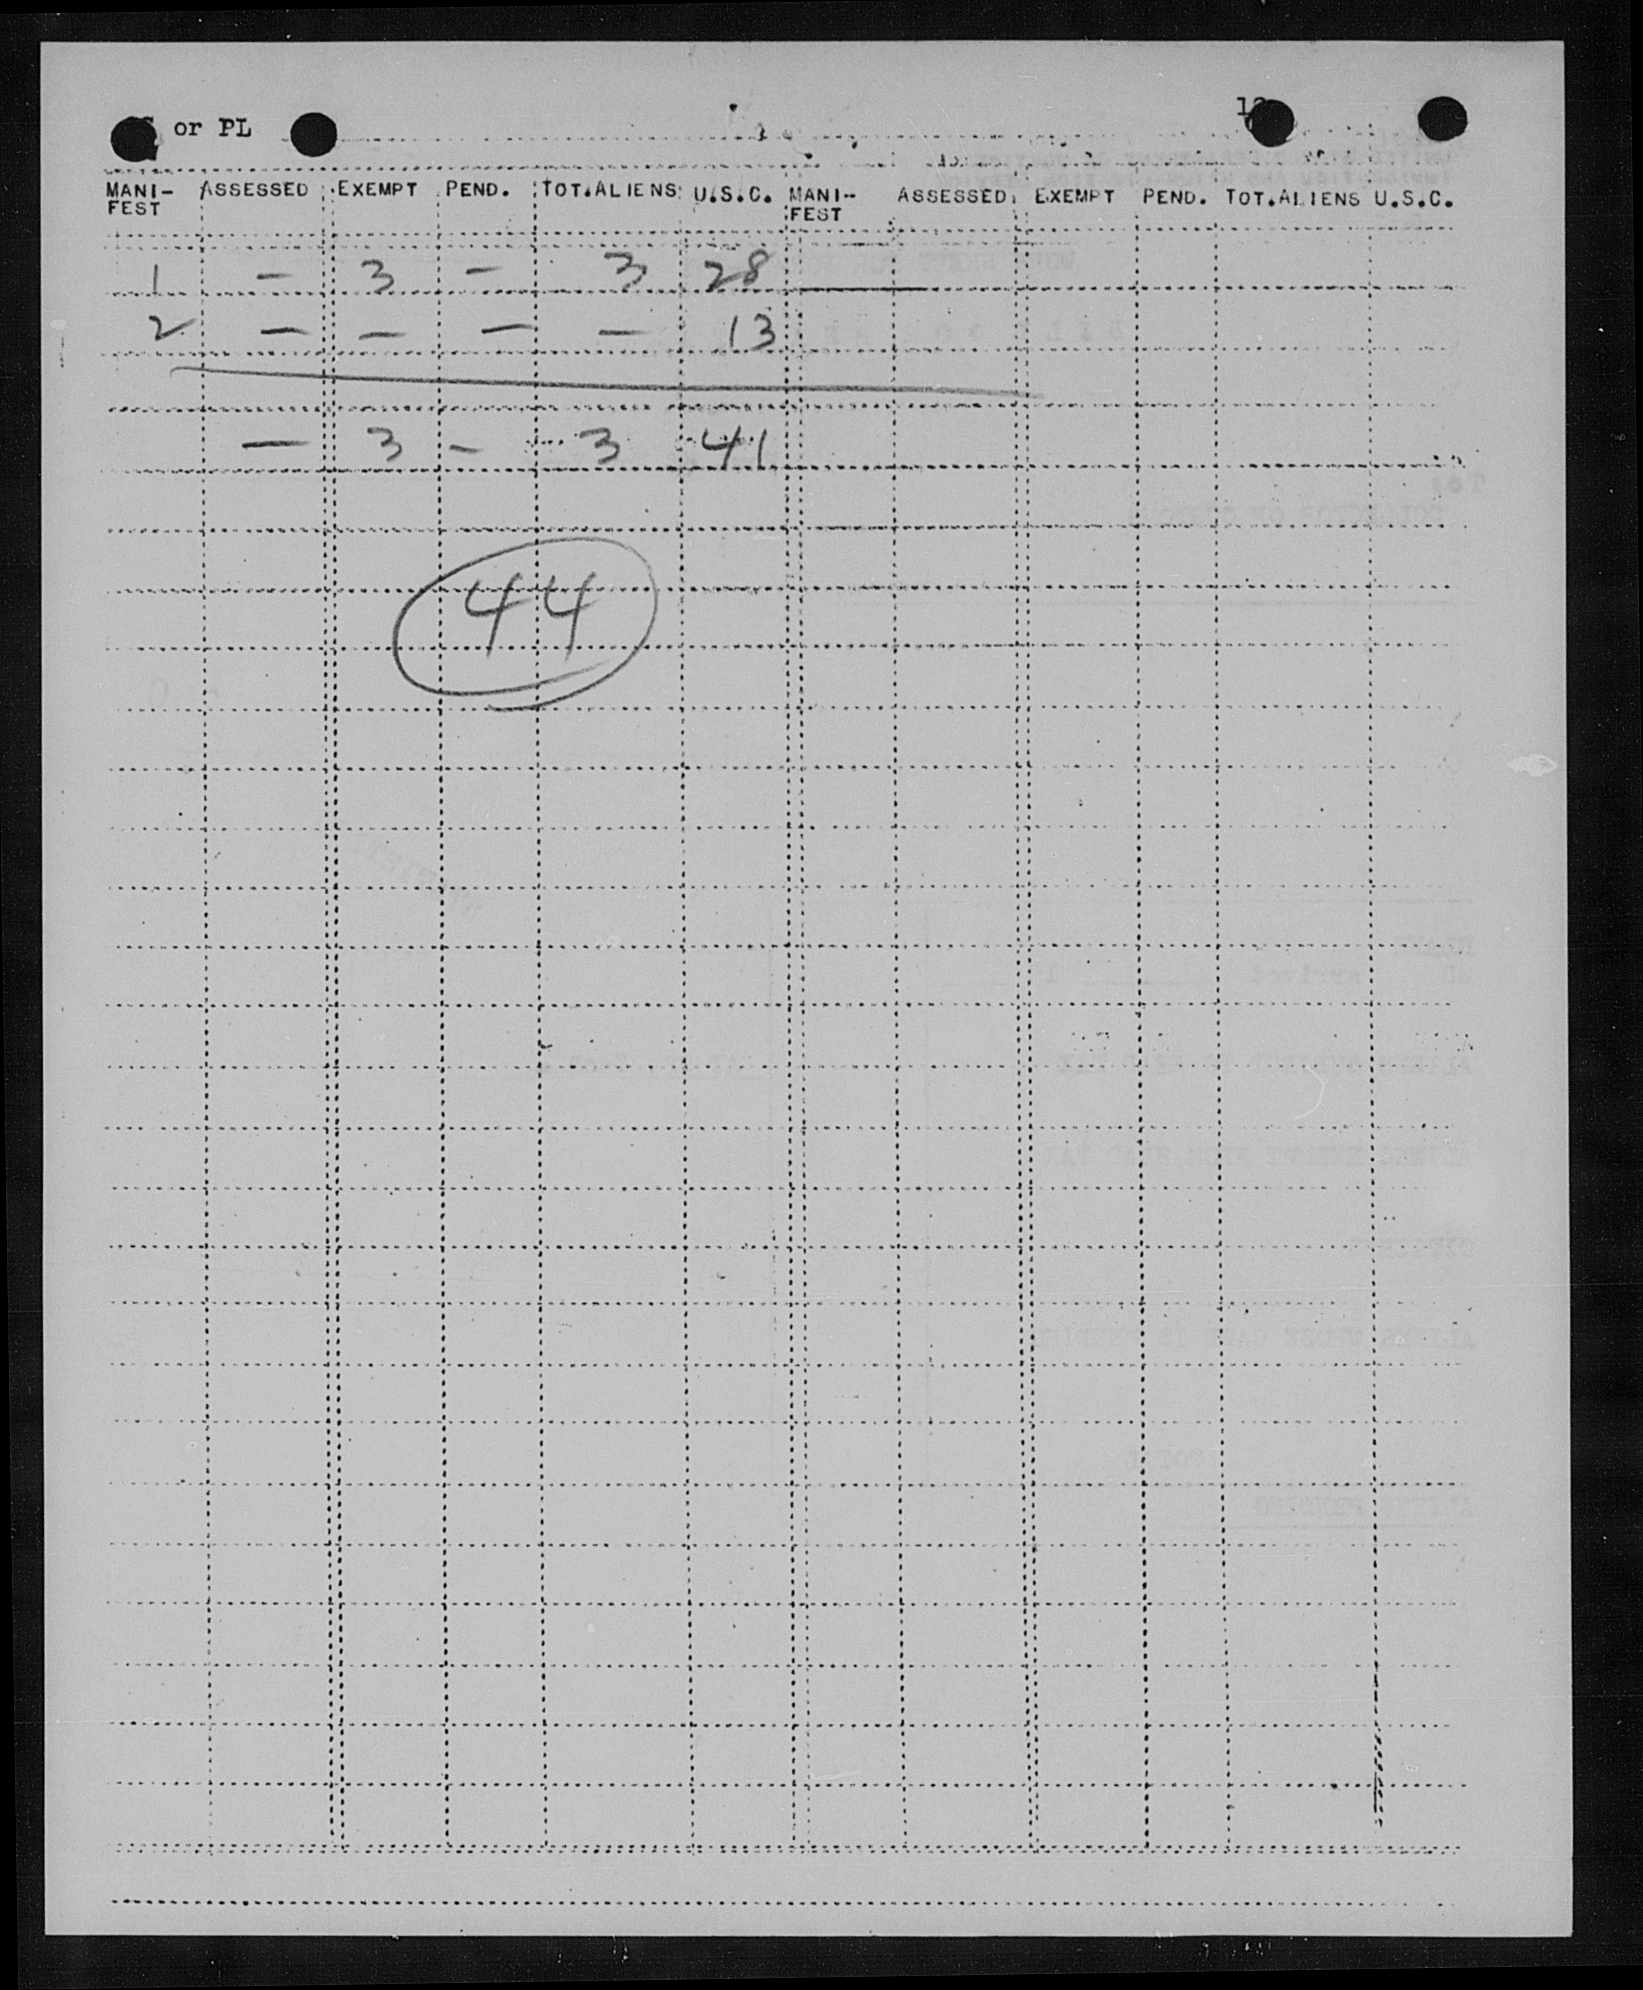 or PL
MANI- ASSESSED EXEMPT PEND. TOT.ALIENS U.S.C. MANI- ASSESSED EXEMPT PEND. TOT.ALIENS U.S.C.
FEST FEST
1 — 3 — 3 28
2 — — — — 13
— 3 — 3 41
44